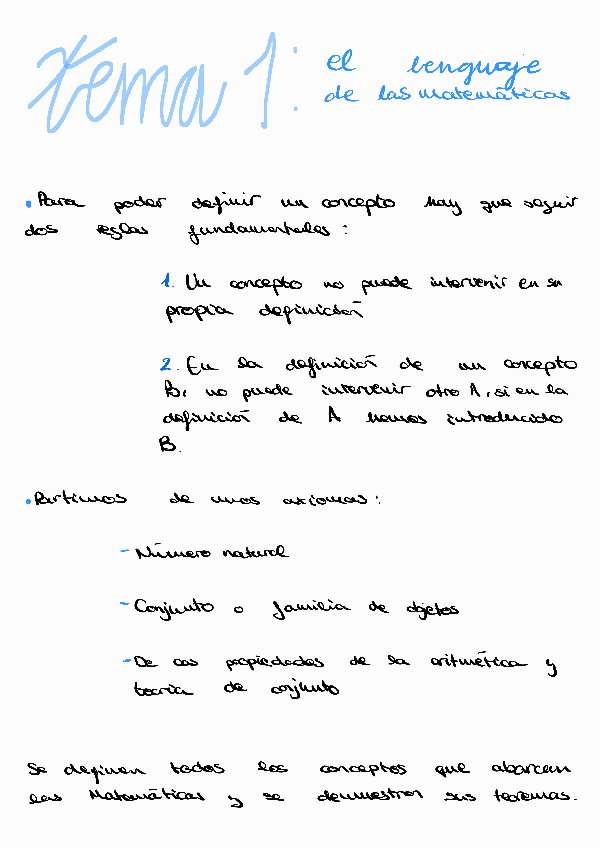 Tema 1: el lenguaje
de las matemáticas
• Para poder definir un concepto hay que seguir
dos reglas fundamentales:
1. Un concepto no puede intervenir en su
propia definición
2. En la definición de un concepto
B, no puede intervenir otro A, si en la
definición de A hemos introducido
B.
• Partimos de unos axiomas:
- Número natural
- Conjunto o familia de objetos
- De las propiedades de la aritmética y
teoría de conjunto
Se definen todos los conceptos que abarcan
las Matemáticas y se demuestran sus teoremas.